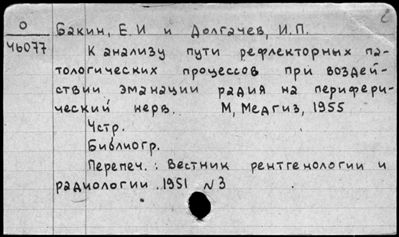 О
46077
Бакин, Е.И и Долгачев, И.П.
К анализу пути рефлекторных па-
тологических процессов при воздей-
ствии эманации радия на перифери-
ческий нерв. М, Медгиз, 1955
4стр.
Библиогр.
Перепеч.: Вестник рентгенологии и
радиологии 1951 №3